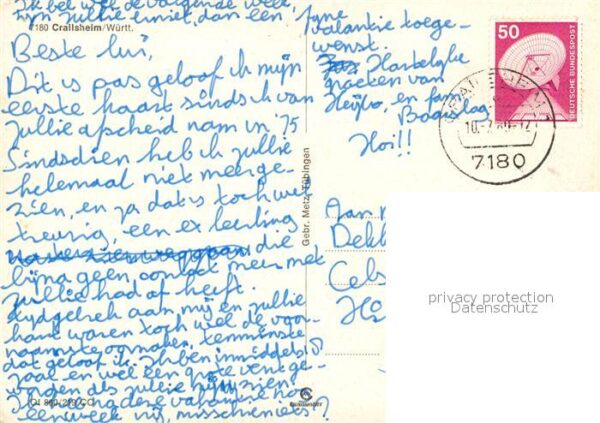 Ik bel wel de volgende week,
zijn jullie er niet, dan een
7180 Crailsheim/Württ.
Beste lui,
Dit is pas geloof ik mijn
eerste kaart sinds ik van
jullie afscheid nam in '75
Sindsdien heb ik jullie
helemaal niet meer ge-
zien, en ja dat is toch wel
treurig, een ex leerling
die
bijna geen contact meer met
jullie had of heeft.
aan mij en jullie
kant waren toch wel de voor-
naamste oorzaken, tenminste
dat geloof ik. Ik ben inmiddels 18
jaar al en wel een grote vent ge-
worden als jullie mij zien.
Ik heb na deze vakantie nog
een week vrij, misschien iets?
fijne
vakantie toege-
wenst.
Hartelijke
groeten van
en fam
Hoi!!
Gebr. Metz, Tübingen
50
DEUTSCHE BUNDESPOST
7180
Aan
Dekk
Cels
privacy protection
Datenschutz